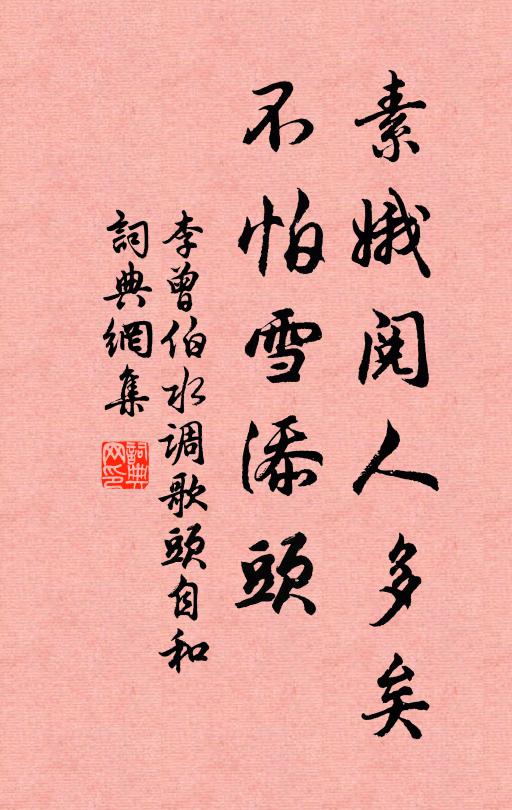 素娥阅人多矣
不怕雪添頭
李曾伯水调歌頭自和
詞典網集
詞典网印